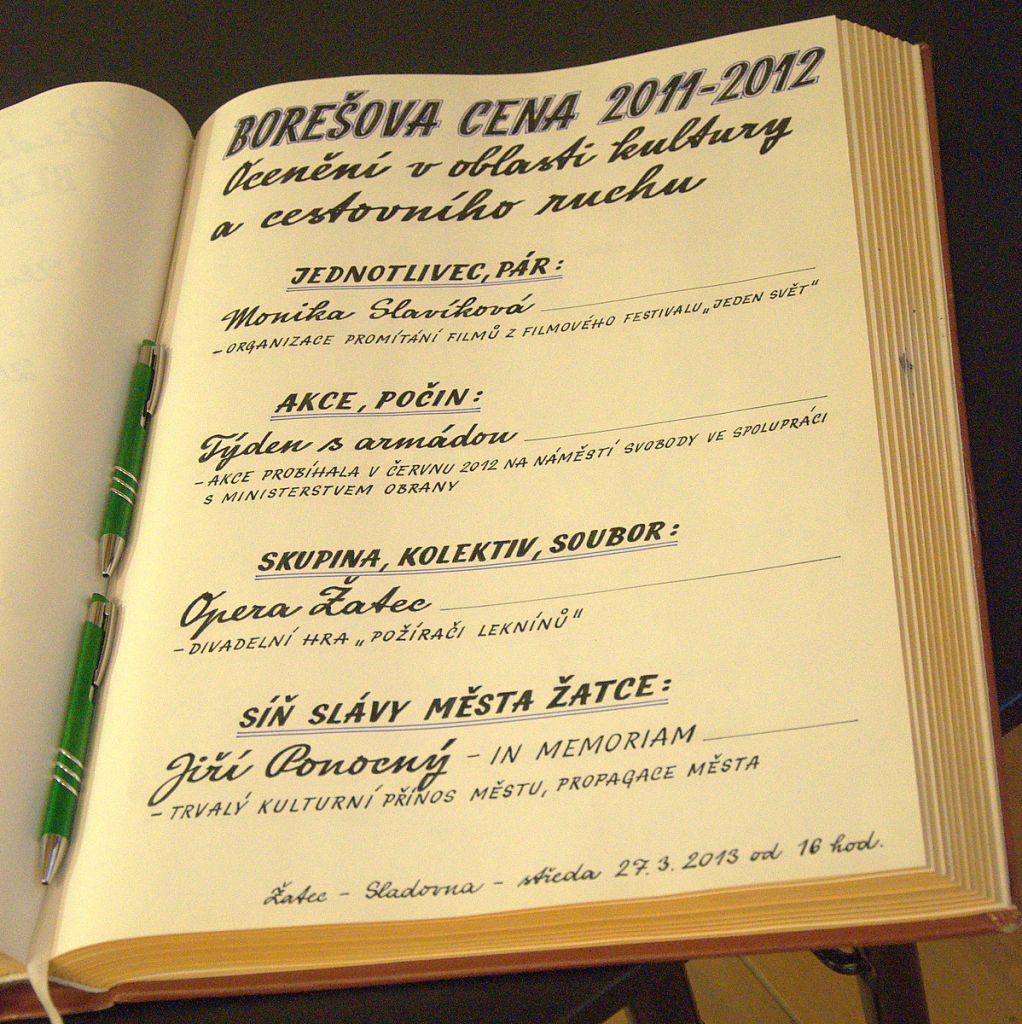 BOREŠOVA CENA 2011-2012
Ocenění v oblasti kultury
a cestovního ruchu
JEDNOTLIVEC, PÁR:
Monika Slavíková
- ORGANIZACE PROMÍTÁNÍ FILMŮ Z FILMOVÉHO FESTIVALU „JEDEN SVĚT"
AKCE, POČIN:
Týden s armádou
- AKCE PROBÍHALA V ČERVNU 2012 NA NÁMĚSTÍ SVOBODY VE SPOLUPRÁCI
S MINISTERSTVEM OBRANY
SKUPINA, KOLEKTIV, SOUBOR:
Opera Žatec
- DIVADELNÍ HRA „POŽÍRAČI LEKNÍNŮ"
SÍŇ SLÁVY MĚSTA ŽATCE:
Jiří Ponocný - IN MEMORIAM
- TRVALÝ KULTURNÍ PŘÍNOS MĚSTU, PROPAGACE MĚSTA
Žatec - Sladovna - středa 27.3.2013 od 16 hod.